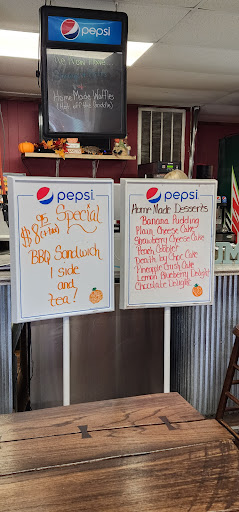 pepsi
We Now Have
Home Made Waffles
pepsi
Special
BBQ Sandwich
1 side
and
tea!
pepsi
Home Made Desserts
Banana Pudding
Plain Cheese Cake
Strawberry Cheese Cake
Peach Cobbler
Death by Choc Cake
Pineapple Crush Cake
Lemon Blueberry Delight
Chocolate Delight